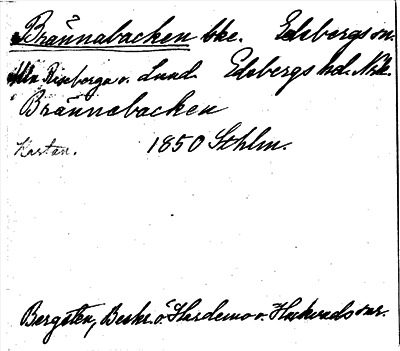 Brännabacken bke. Edsbergs sn.
Mln Riseberga o. Lund. Edsbergs hd. Nrke.
Brännebacken
Kartan. 1850 Sthlm.
Bergsten, Beskr. ö. Hardemo o. Hackvads snr.